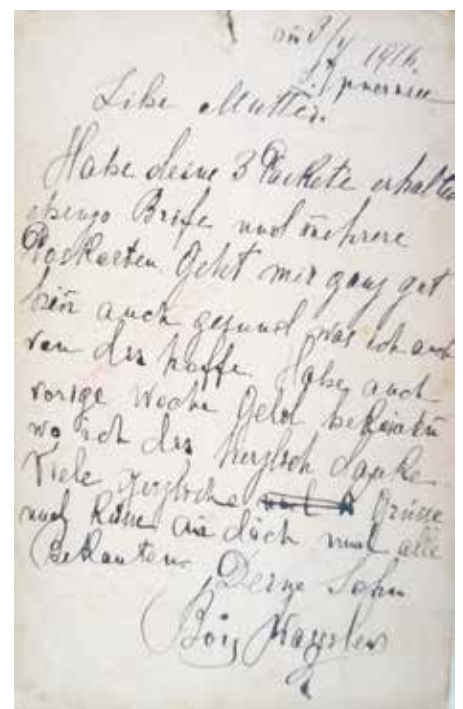 1916.
Libe Mutter.
Habe deine 3 Packete erhalten
ebenso Brife und mehrere
Postkarten. Geht mir ganz gut
bin auch gesund was ich auch
von dir hoffe. Habe auch
vorige Woche Geld bekomen
wo ich dir herzlich danke.
Viele herzliche Grüsse
und Küsse an dich und alle
Bekanten. Deine Sohn